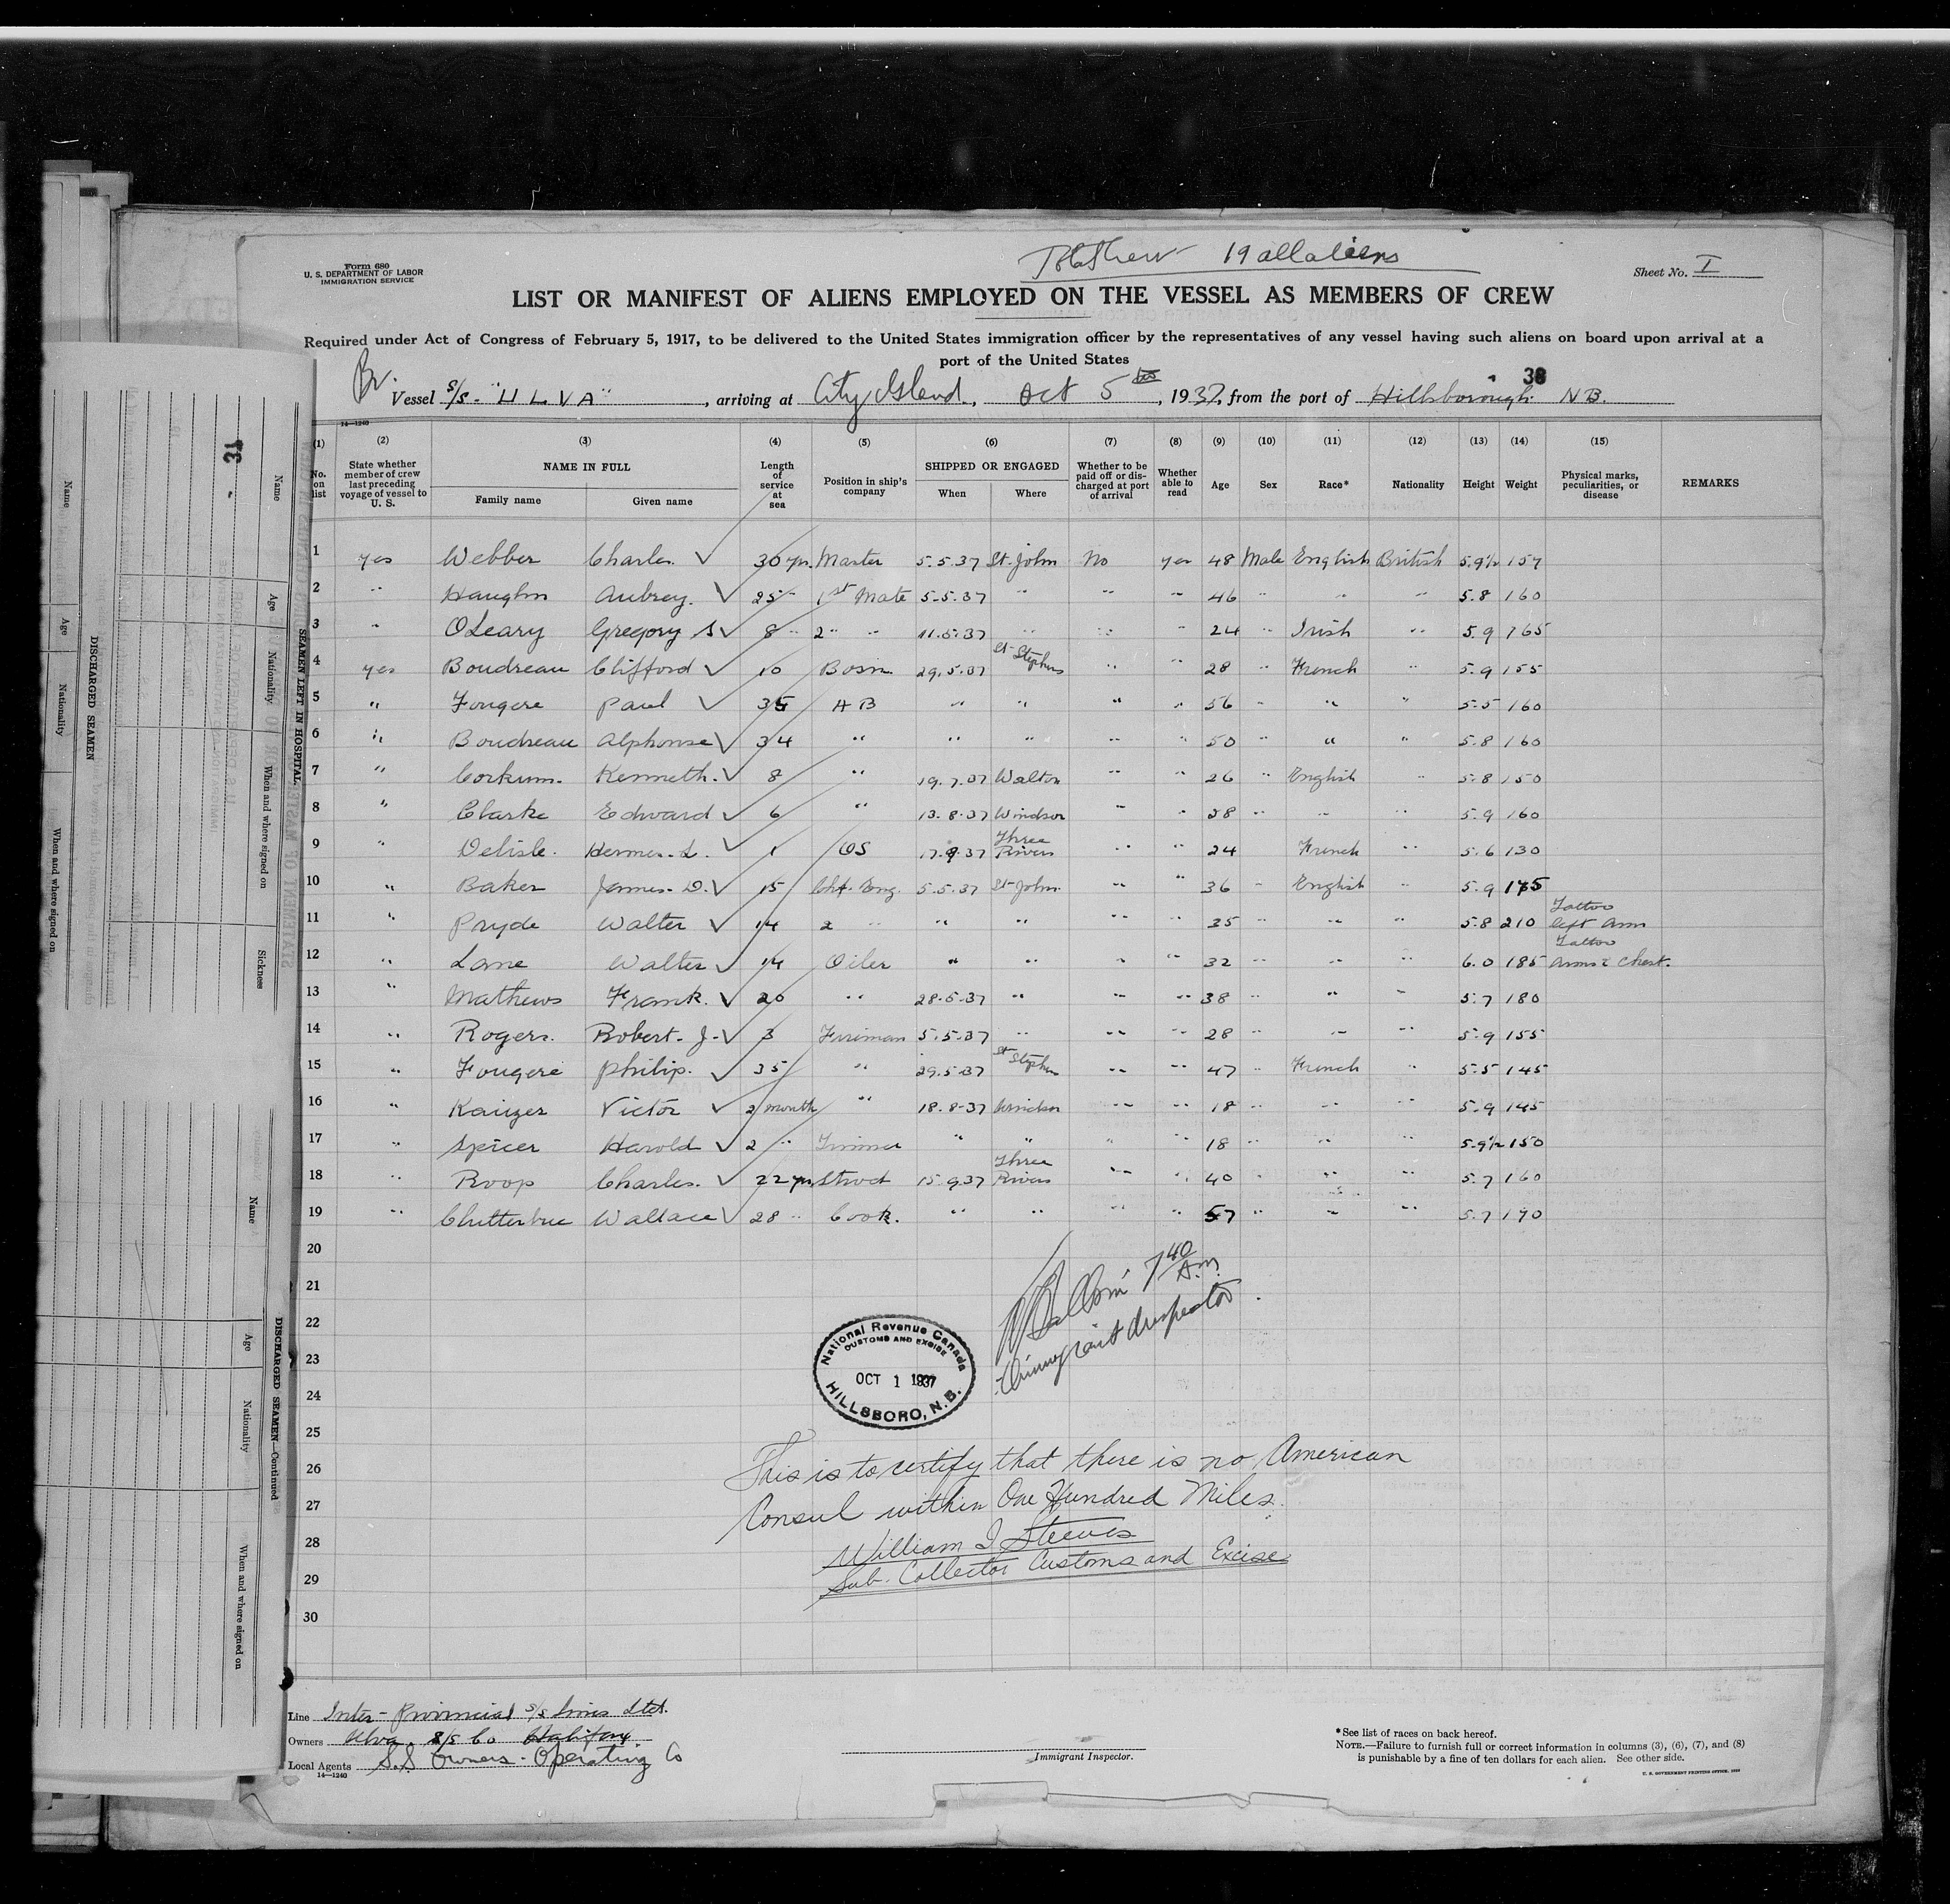 Total crew 19 all aliens
Form 680
U. S. DEPARTMENT OF LABOR
IMMIGRATION SERVICE
Sheet No. I
LIST OR MANIFEST OF ALIENS EMPLOYED ON THE VESSEL AS MEMBERS OF CREW
Required under Act of Congress of February 5, 1917, to be delivered to the United States immigration officer by the representatives of any vessel having such aliens on board upon arrival at a
port of the United States
38
Br. Vessel s/s "ULVA", arriving at City Island, Oct 5th, 1937, from the port of Hillsborough NB.
14—1240
(1) (2) (3) (4) (5) (6) (7) (8) (9) (10) (11) (12) (13) (14) (15)
No. on list State whether member of crew last preceding voyage of vessel to U. S. NAME IN FULL Family name Given name Length of service at sea Position in ship's company SHIPPED OR ENGAGED When Where Whether to be paid off or discharged at port of arrival Whether able to read Age Sex Race* Nationality Height Weight Physical marks, peculiarities, or disease REMARKS
1 yes Webber Charles. ✓ 30 yrs. Master 5.5.37 St. John No yes 48 Male English British 5.9½ 157
2 " Haughn Aubrey. ✓ 25 " 1st Mate 5.5.37 " " " 46 " " " 5.8 160
3 " OLeary Gregory S ✓ 8 " 2 " " 11.5.37 " " " 24 " Irish " 5.9 165
4 yes Boudreau Clifford ✓ 10 Bosn. 29.5.37 St Stephen " " 28 " French " 5.9 155
5 " Fougere Paul ✓ 35 AB " " " " 56 " " " 5.5 160
6 " Boudreau Alphonse ✓ 34 " " " " " 50 " " " 5.8 160
7 " Corkum. Kenneth. ✓ 8 " 19.7.37 Walton " " 26 " English " 5.8 150
8 " Clarke Edward ✓ 6 " 13.8.37 Windsor " " 28 " " " 5.9 160
9 " Delisle. Hermes. L. ✓ 1 OS 17.9.37 Three Rivers " " 24 French " 5.6 130
10 " Baker James. D. ✓ 15 Chf. Eng. 5.5.37 St John. " " 36 " English " 5.9 175
11 " Pryde Walter ✓ 14 2 " " " " " 35 " " " 5.8 210 Tattoo left arm
12 " Lane Walter ✓ 14 Oiler " " " " 32 " " " 6.0 185 Tattoo arms & chest.
13 " Mathews Frank. ✓ 20 " 28.5.37 " " " 38 " " " 5.7 180
14 " Rogers. Robert. J. ✓ 3 Fireman 5.5.37 " " " 28 " " " 5.9 155
15 " Fougere Philip. ✓ 35 " 29.5.37 St Stephen " " 47 " French " 5.5 145
16 " Kaizer Victor ✓ 2 month " 18.8.37 Windsor " " 18 " " " 5.9 145
17 " Spicer Harold ✓ 2 " Trimmer " " " " 18 " " " 5.9½ 150
18 " Roop Charles. ✓ 22 yrs Stwd 15.9.37 Three Rivers " " 40 " " " 5.7 160
19 " Wallace ✓ 28 " Cook. " " " " 57 " " " 5.7 190
20
21
22
23
24
25
26
27
28
29
30
7 40 A.m.
Immigrant Inspector
National Revenue Canada
CUSTOMS AND EXCISE
OCT 1 1937
HILLSBORO, N. B.
This is to certify that there is no American
Consul within One Hundred Miles.
William I Steeves
Sub. Collector Customs and Excise
Line Inter-Provincial s/s Lines Ltd.
Owners Ulva s/s Co Halifax
Local Agents S.S Owners - Operating Co
14—1240
Immigrant Inspector.
*See list of races on back hereof.
NOTE.—Failure to furnish full or correct information in columns (3), (6), (7), and (8)
is punishable by a fine of ten dollars for each alien. See other side.
U. S. GOVERNMENT PRINTING OFFICE
31
Name
Age
Nationality
When and where signed on
DISCHARGED SEAMEN
Name
Age
Nationality
When and where signed on
Sickness
SEAMEN LEFT IN HOSPITAL
STATEMENT OF MASTER
Name
Age
Nationality
When and where signed on
DISCHARGED SEAMEN—Continued